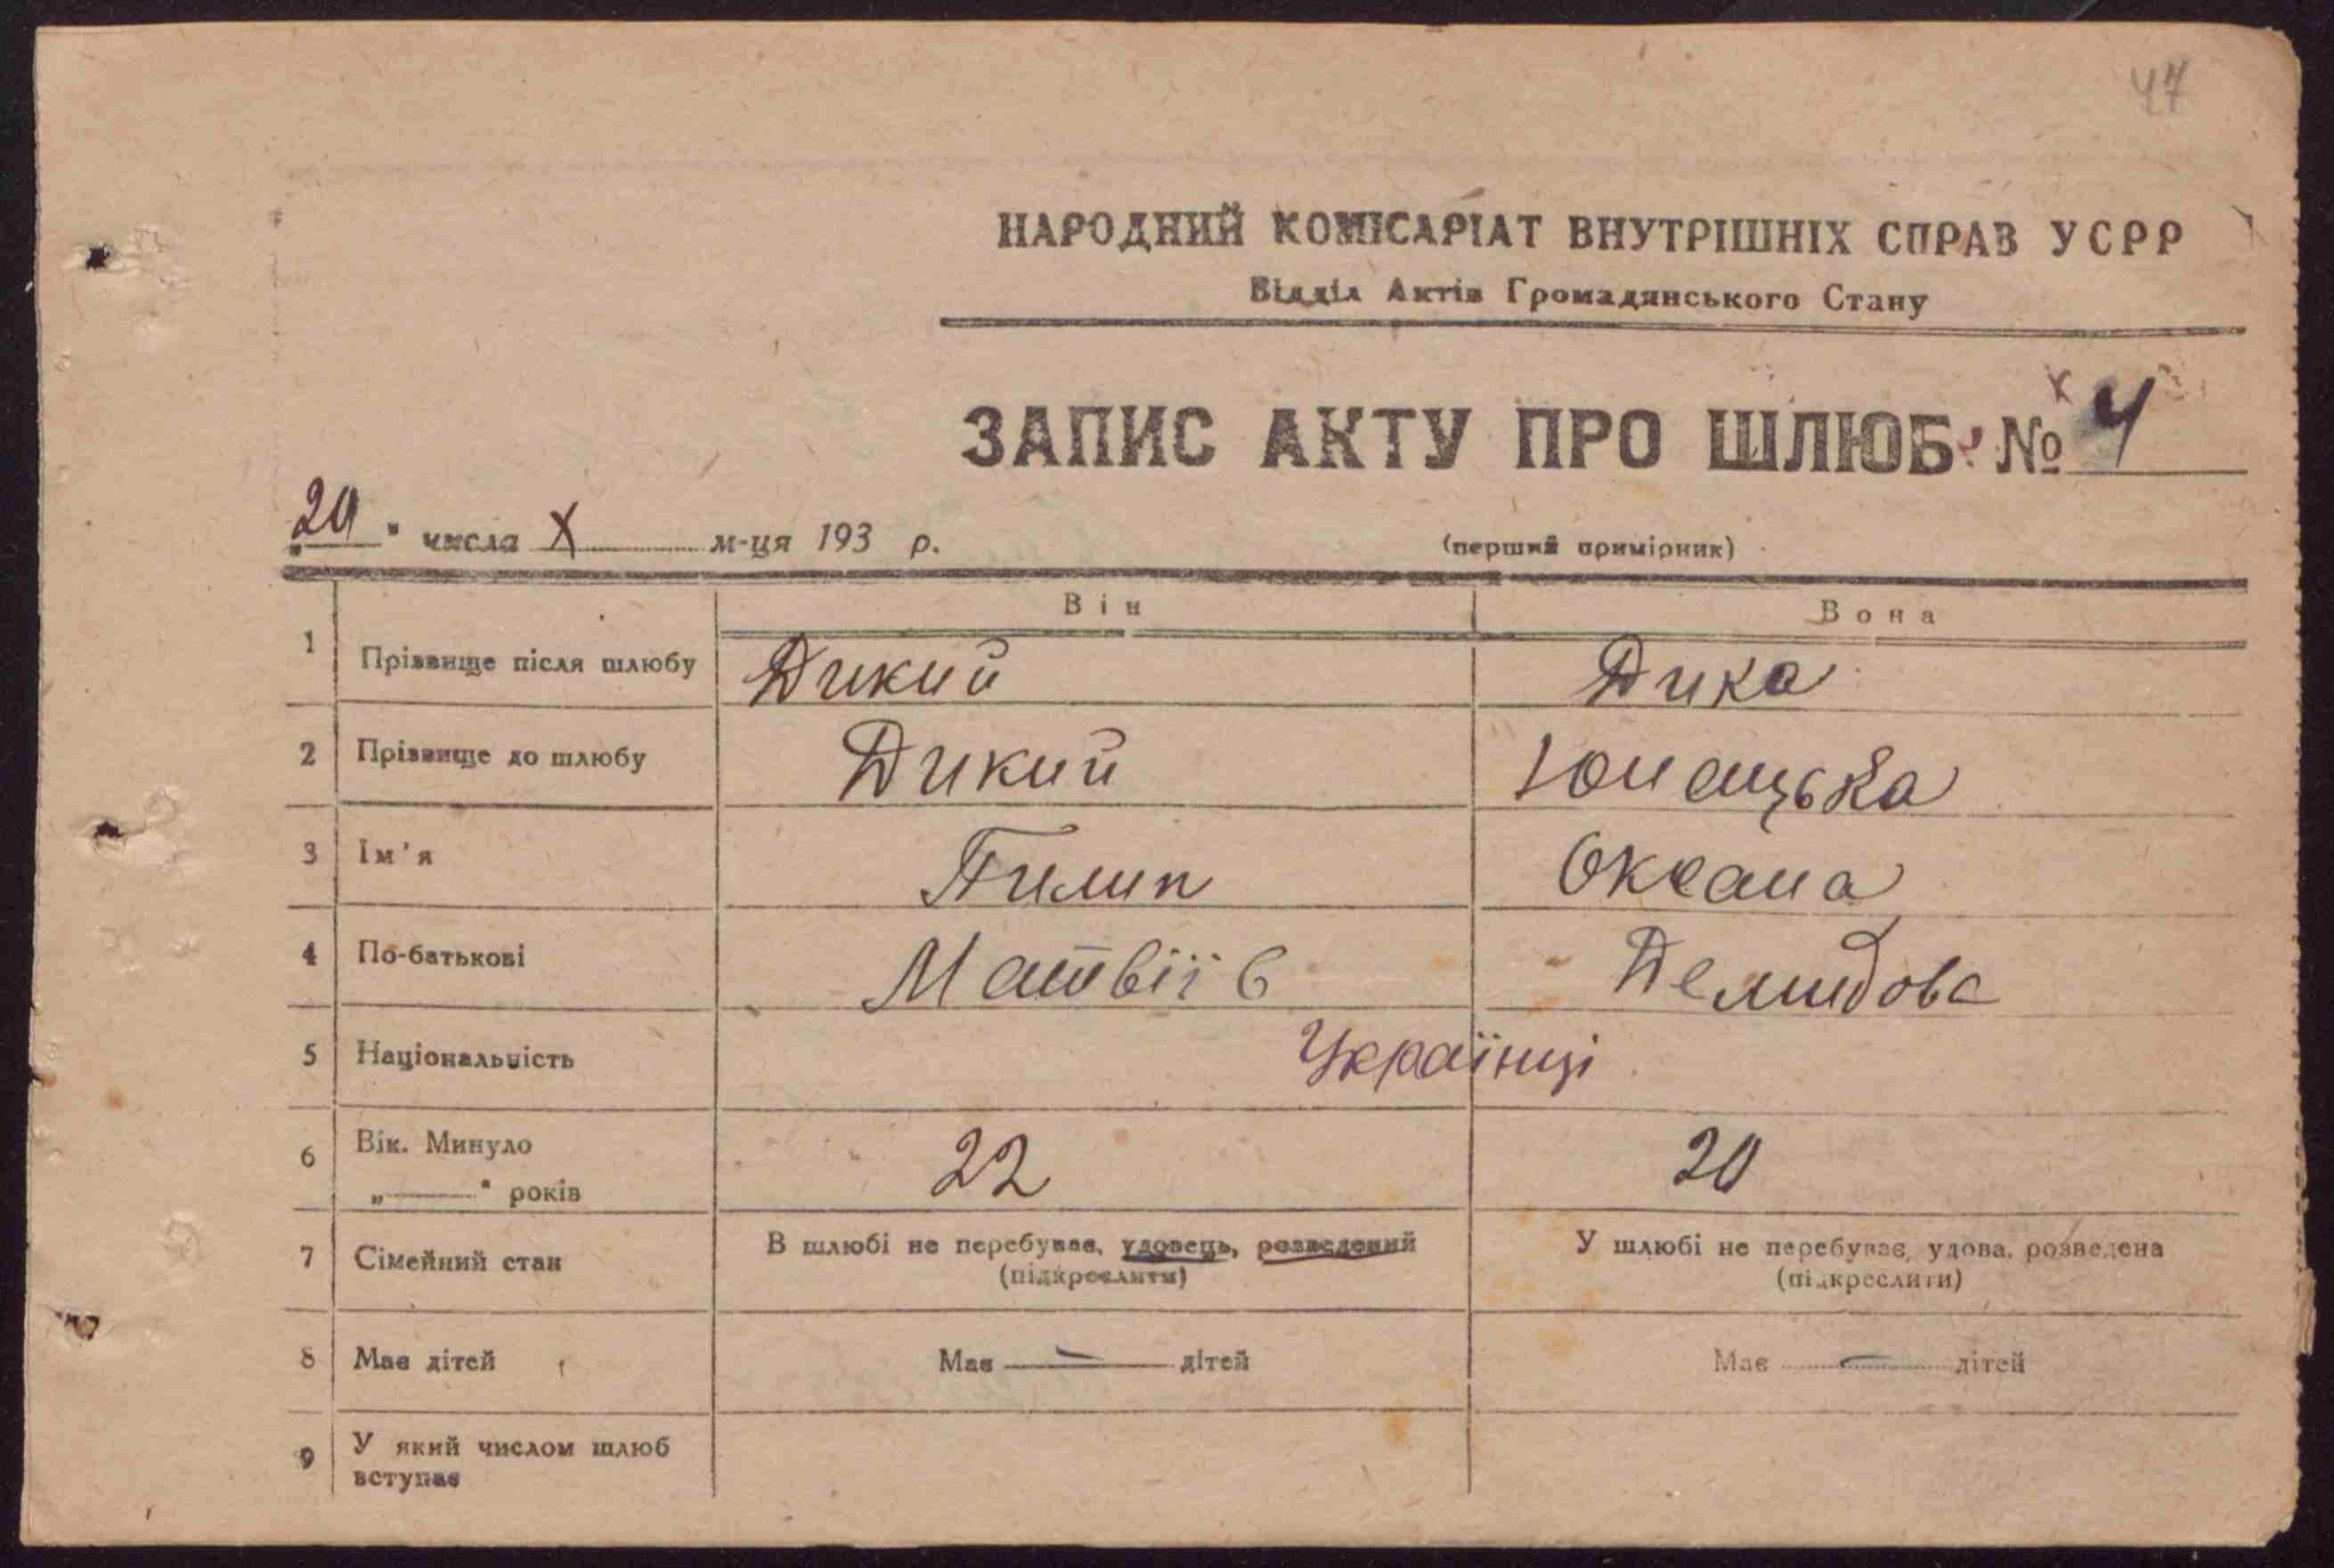 47
НАРОДНИЙ КОМІСАРІАТ ВНУТРІШНІХ СПРАВ УСРР
Відділ Актів Громадянського Стану
ЗАПИС АКТУ ПРО ШЛЮБ № 4
"20" числа X м-ця 193 р. (перший примірник)
Він Вона
1 Прізвище після шлюбу Дикий Дика
2 Прізвище до шлюбу Дикий
3 Ім'я Пилип Оксана
4 По-батькові Матвіїв Демидова
5 Національність Українці
6 Вік. Минуло 22 20
„—" років
7 Сімейний стан В шлюбі не перебуває, удовець, розведений У шлюбі не перебуває, удова, розведена
(підкреслити) (підкреслити)
8 Має дітей Має — дітей Має — дітей
9 У який числом шлюб
вступає